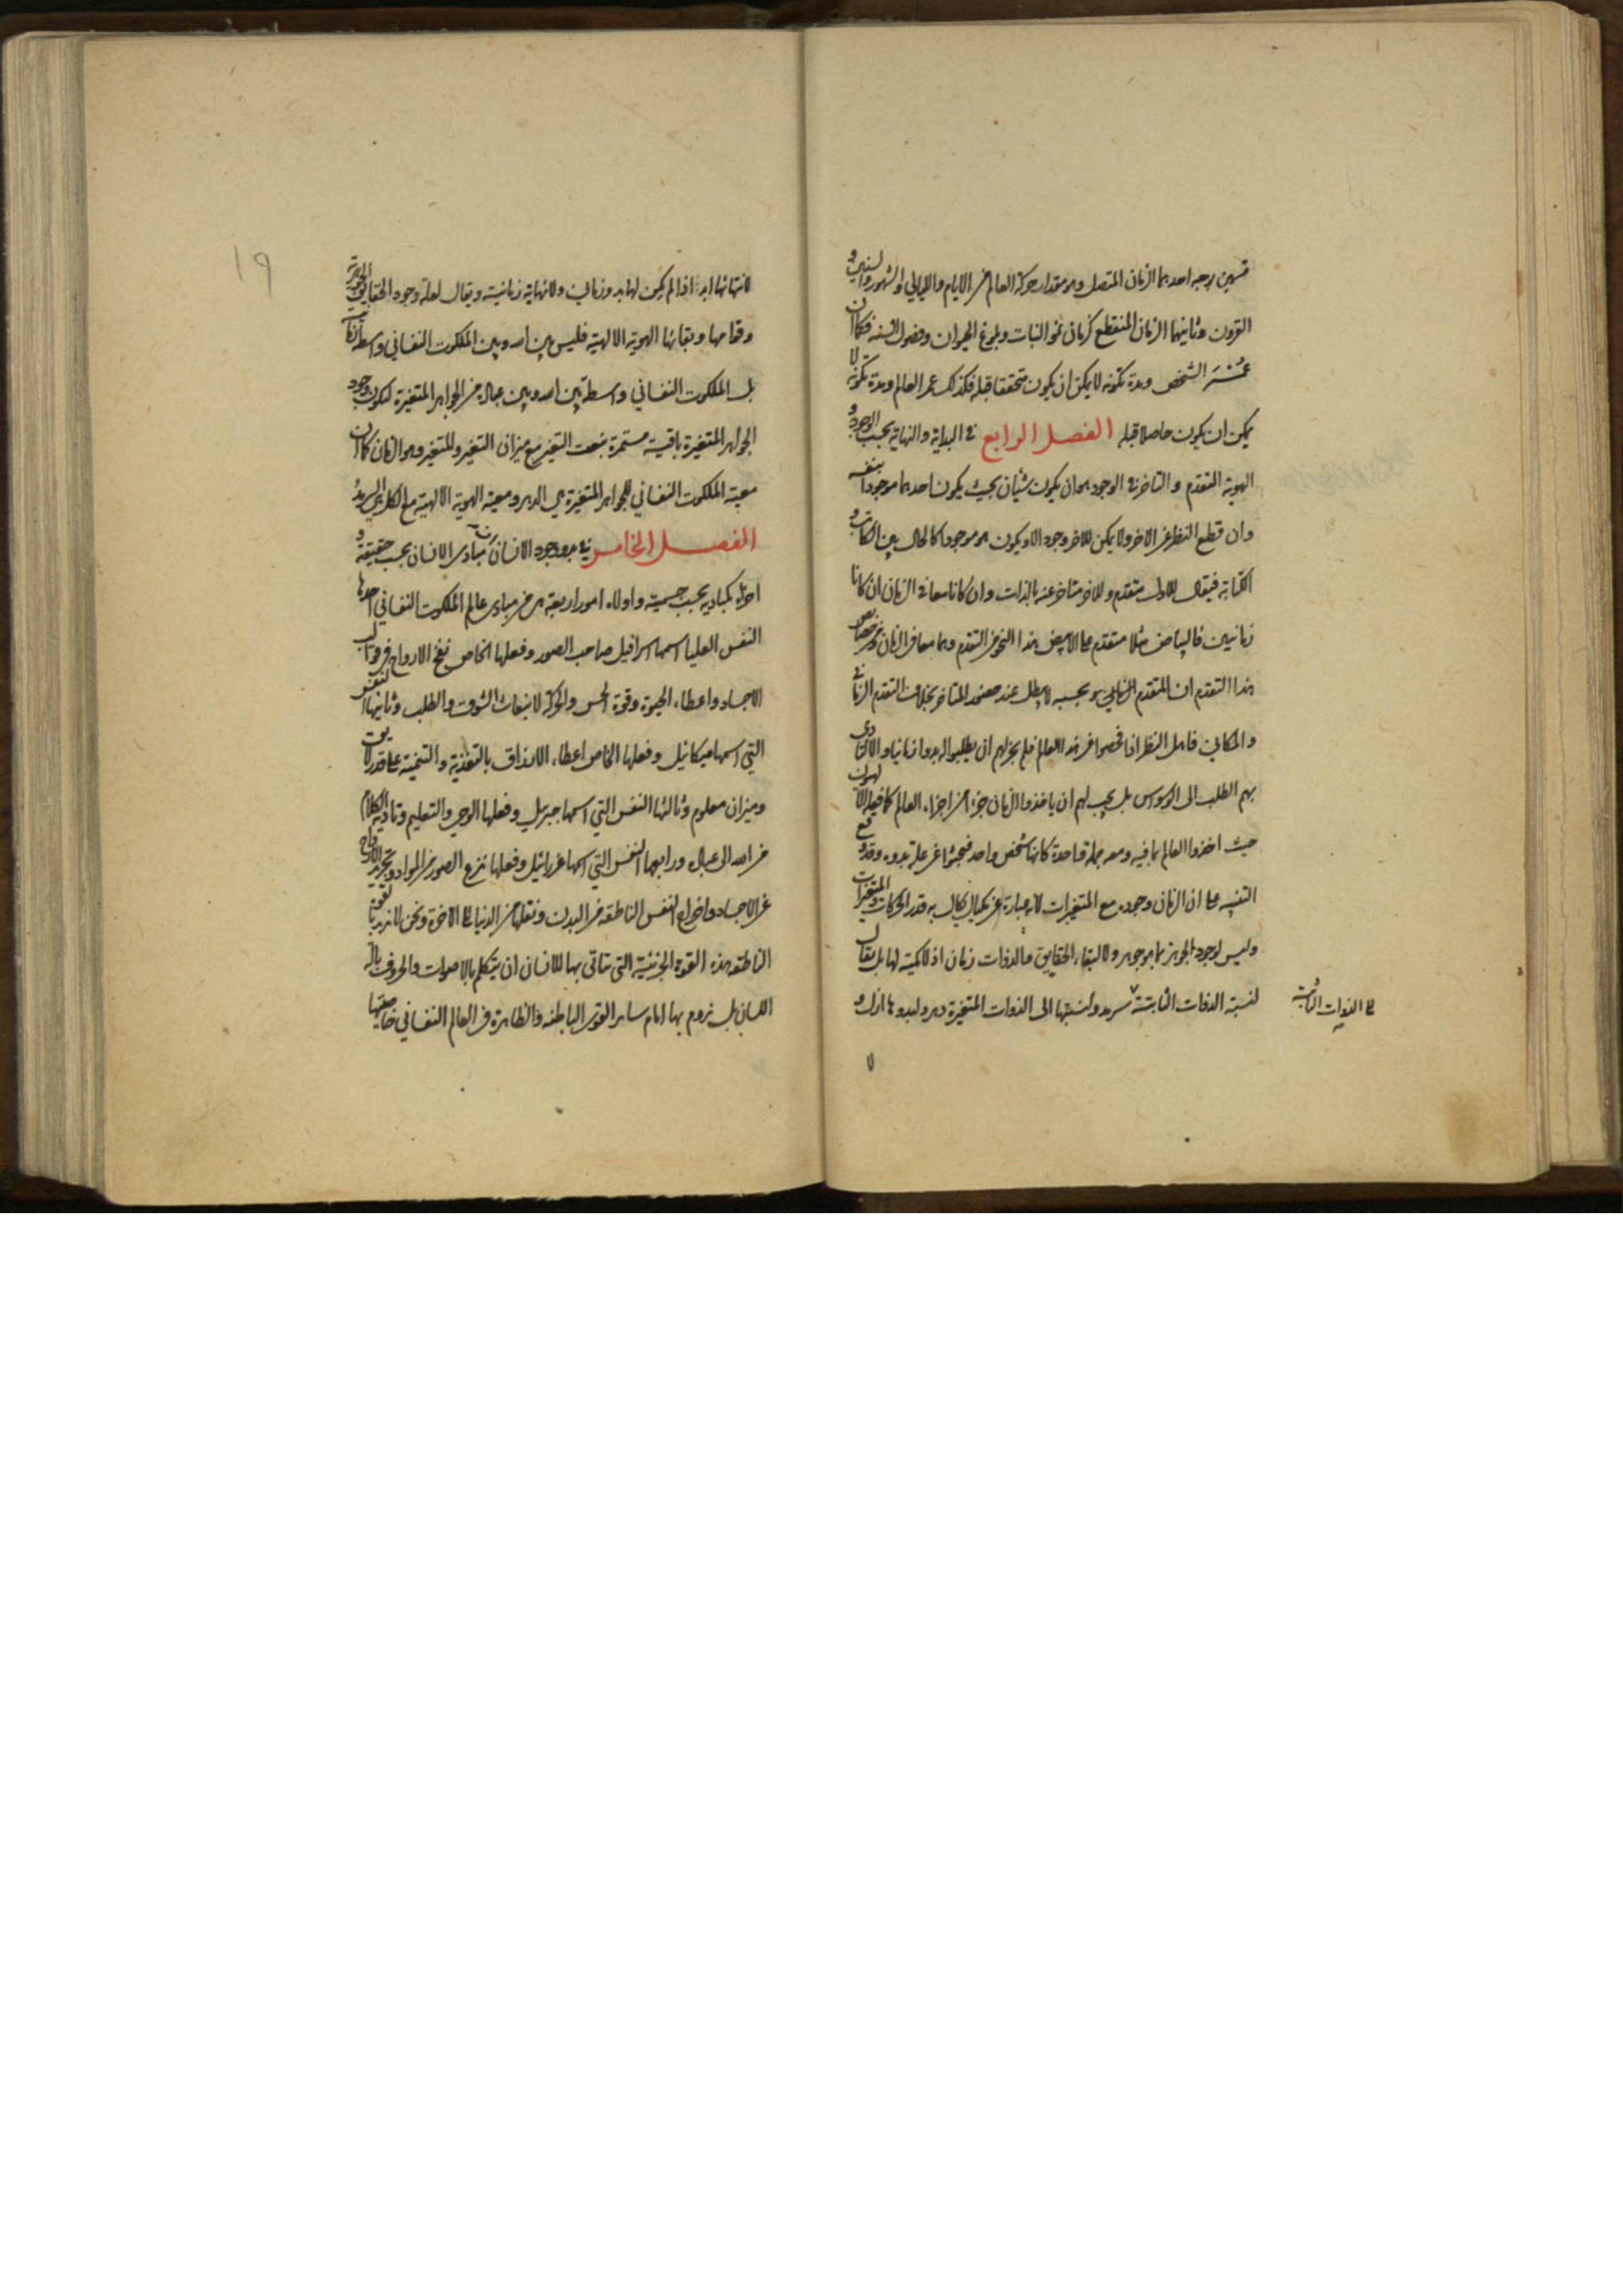 قسمين لوجه احدهما الزمان المتصل وهو مقدار حركة العالم من الايام والليالي والشهور والسنين و
القرون وثانيهما الزمان المنقطع كزمان نمو النبات وبلوغ الحيوان وفصول السنة فكما ان
عُمْر الشخص ومدة تكونه لا يمكن ان يكون متحققا قبله فكذلك عمر العالم ومدة تكونه لا
يمكن ان يكون حاصلا قبله الفصل الرابع في البداية والنهاية بحسب الوجود و
الهوية التقدم والتاخر في الوجود هو ان يكون شيئان بحيث يكون احدهما موجودا بنفسه
وان قطع النظر عن الاخر ولا يمكن للاخر وجود الا ويكون هو موجودا كالحال بين الكاتب و
الكتابة فيقال للاول متقدم وللاخر متاخر عنه بالذات وان كانا معا في الزمان ان كانا
زمانيين فالبياض مثلا متقدم على الابيض هذا النحو من التقدم وهما معا في الزمان ومن خصائص
هذا التقدم ان المتقدم الذي هو بحسبه لا يبطل عند حضور المتاخر بخلاف التقدم الزماني
والمكاني فاهل النظر اذا فحصوا في هذا العالم فلم يجز لهم ان يطلبوا له بدوا زمانيا والا لادى
بهم الطلب الى الوسواس بل يجب لهم ان ياخذوا الزمان جزءا من اجزاء العالم كما فعله الالهيون
حيث اخذوا العالم بما فيه ومعه جملة واحدة كانها شخص واحد فبحثوا عن علة بدوه وقد وقع
التنبيه على ان الزمان وجوده مع المتغيرات لانه عبارة عن مكيال يكال به قدر الحركات والمتغيرات
وليس لوجود الجوهر بما هو جوهر ولا لبقاء الحقايق والذوات زمان اذ لا كمية لها بل يقال
لنسبة الذوات الثابتة سرمد ولنسبتها الى الذوات المتغيرة دهر ولبدوها ازل و
الى الذوات الثابتة
لا
١٩
لانتهائها ابد اذا لم يكن لها بدو زماني ولا نهاية زمانية ويقال لعلة وجود الحقايق الجوهرية
وقوامها وبقائها الهوية الالهية فليس بين الله وبين الملكوت النفساني واسطة زمانية
بل الملكوت النفساني واسطة بين الله وبين عباده من الجواهر المتغيرة لتكون وجود
الجواهر المتغيرة باقية مستمرة بنعت التغير مع ميزان التغير وللمتغير وهو الزمان كما ان
معية الملكوت النفساني للجواهر المتغيرة هي الدهر ومعية الهوية الالهية مع الكل هي السرمد
الفصل الخامس في بدو وجود الانسان ان مبادى الانسان بحسب حقيقة و
اجزاء كمباديه بحسب جسمية واولاء امور اربعة هن من مبادى عالم الملكوت النفساني احدها
النفس العليا اسمها اسرافيل صاحب الصور وفعلها الخاص نفخ الارواح في قوالب
الاجساد واعطاء الحيوة وقوة الحس والحركة لانبعاث الشوق والطلب وثانيها النفس
التي اسمها ميكائيل وفعلها الخاص اعطاء الارزاق بالتغذية والتنمية على قدر لايق
وميزان معلوم وثالثها النفس التي اسمها جبريل وفعلها الوحي والتعليم وتادية الكلام
من الله الى عباده ورابعها النفس التي اسمها عزرائيل وفعلها نزع الصور من المواد وتجريد الارواح
عن الاجساد واخراج النفس الناطقة من البدن ونقلها من الدنيا الى الاخرة ونحن لا نريد بالقوة
الناطقة هذه القوة الجزئية التي يتاتى بها للانسان ان يتكلم بالاصوات والحروف بآلة
اللسان بل نروم بها امام ساير القوى الباطنة والظاهرة في العالم النفساني خاصيتها